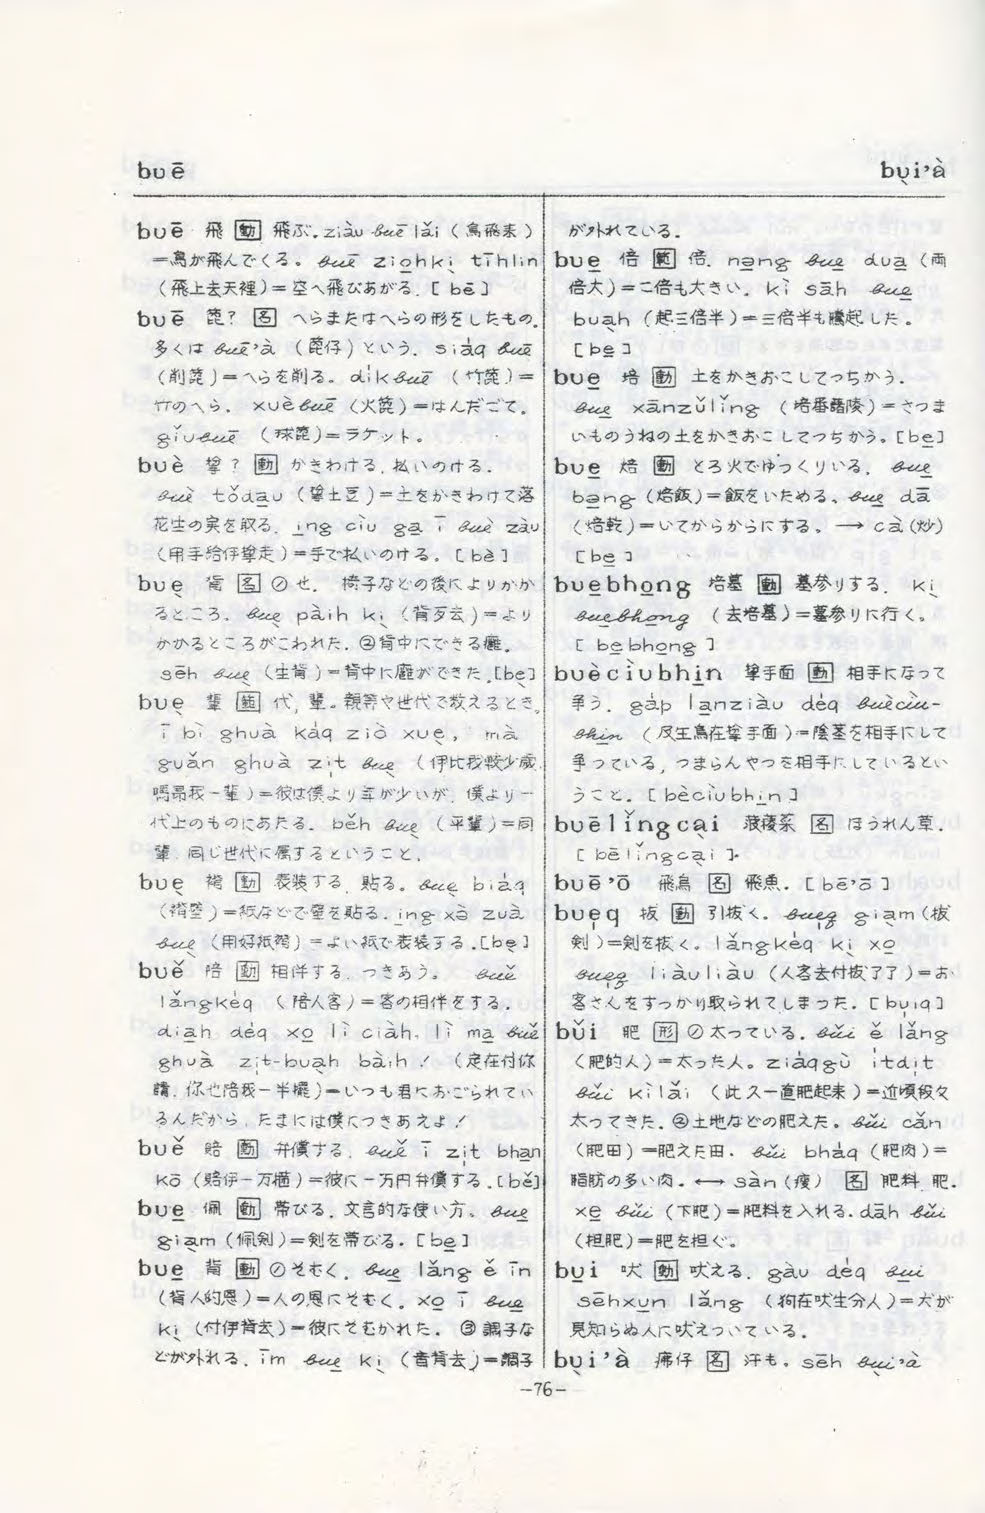 buē
bu̖i’à
buē 飛 動 飛ぶ. ziàu buē lǎi (鳥飛来)
=鳥が飛んでくる。 buē zio̱hki̖ tīhlin
(飛上去天裡)=空へ飛びあがる. [bē]
buē 篦? 名 へらまたはへらの形をしたもの.
多くは buē’à (篦仔)という. siáq buē
(削篦)=へらを削る。 dikbuē (竹篦)=
竹のへら. xuèbuē (火篦)=はんだごて.
giǔbuē (球篦)=ラケット。
buè 掌? 動 かきわける. 払いのける.
buè tǒda̱u (掌土豆)=土をかきわけて落
花生の実を取る. i̱ng ciu ga̱ ī buè zàu
(用手給伊掌走)=手で払いのける。 [bè]
bue̖ 背 名 ⊘せ. 椅子などの後によりかか
るところ. bue̖ pàih ki̖ (背歹去)=より
かかるところがこわれた. ②背中にできる癰.
sēh bue̖ (生背)=背中に癰ができた.[be̖]
bue̖ 輩 代, 輩。親等や世代で数えるとき.
ī bì ghuà káq ziò xue̖, mà
guǎn ghuà zi̍t bue̖ (伊比我較少歳.
嗎昂我一輩)=彼は僕より年が少いが, 僕より一
代上のものにあたる. běh bue̖ (平輩)=同
輩. 同じ世代に属するということ.
bue̖ 褙 動 表装する. 貼る。 bue̖ biáq
(褙壁)=紙などで壁を貼る. i̱ng xò zuà
bue̖ (用好紙褙)=よい紙で表装する.[be̖]
buě 陪 動 相伴する. つきあう。 buě
lǎngkéq (陪人客)=客の相伴をする.
dia̱h déq xo̱ lì ciàh, lì ma̱ buě
ghuà zi̍t-bua̖h bàih! (定在付你
請. 你也陪我一半擺)=いつも君におごられてい
るんだから, たまには僕につきあえよ!
buě 賠 動 弁償する. buě ī zi̍t bha̱n
kō (賠伊一万箍)=彼に一万円弁償する.[bě]
bue̱ 佩 動 帯びる. 文言的な使い方. bue̱
gia̖m (佩剣)=剣を帯びる. [be̱]
bue̱ 背 動 ⊘そむく. bue̱ lǎng ě īn
(背人的恩)=人の恩にそむく。 xo̱ ī bue̱
ki̖ (付伊背去)=彼にそむかれた. ②調子な
どが外れる. īm bue̱ ki̖ (音背去)=調子
が外れている.
bue̱ 倍 範 倍. nəng bue̱ dua̱ (両
倍大)=二倍も大きい. kì sāh bue̱
bua̖h (起三倍半)=三倍半も騰起した。
[be̱]
bue̱ 培 動 土をかきおこしてつちかう.
bue̱ xānzǔlǐng (培番藷陵)=さつま
いものうねの土をかきおこしてつちかう。[be̱]
bue̱ 焙 動 とろ火でゆっくりいる. bue̱
bəng (焙飯)=飯をいためる. bue̱ dā
(焙乾)=いてからからにする。 → cà(炒)
[be̱]
bue̱bho̱ng 培墓 動 墓参りする. ki̖
bue̱bho̱ng (去培墓)=墓参りに行く。
[be̱bho̱ng]
buèciùbhi̱n 掌手面 動 相手になって
争う. gáp la̱nziàu déq buèciù-
bhi̱n (及王鳥在掌手面)=陰茎を相手にして
争っている, つまらんやつを相手にしているとい
うこと. [bèciùbhi̱n]
buēlǐngca̖i 菠薐菜 名 ほうれん草.
[bēlǐngca̖i]
buē’ō 飛烏 名 飛魚. [bē’ō]
bue̍q 抜 動 引抜く. bue̍q gia̖m(抜
剣)=剣を抜く。 lǎngkéq ki̖ xo̱
bue̍q liàuliàu (人客去付抜了了)=お
客さんをすっかり取られてしまった. [bui̍q]
bǔi 肥 形 ⊘太っている. bǔi ě lǎng
(肥的人)=太った人. ziáqgù itdi̍t
bǔi kìlǎi (此久一直肥起来)=近頃段々
太ってきた. ②土地などの肥えた。 bǔi cǎn
(肥田)=肥えた田. bǔi bháq (肥肉)=
脂肪の多い肉. ↔ sàn(瘦) 名 肥料. 肥.
xe̱ bǔi (下肥)=肥料を入れる. dāh bǔi
(担肥)=肥を担ぐ。
bu̱i 吠 動 吠える. gàu déq bu̱i
sēhxu̱n lǎng (狗在吠生分人)=犬が
見知らぬ人に吠えついている.
bu̖i’à 痱仔 名 汗も。 sēh bu̖i’à
-76-